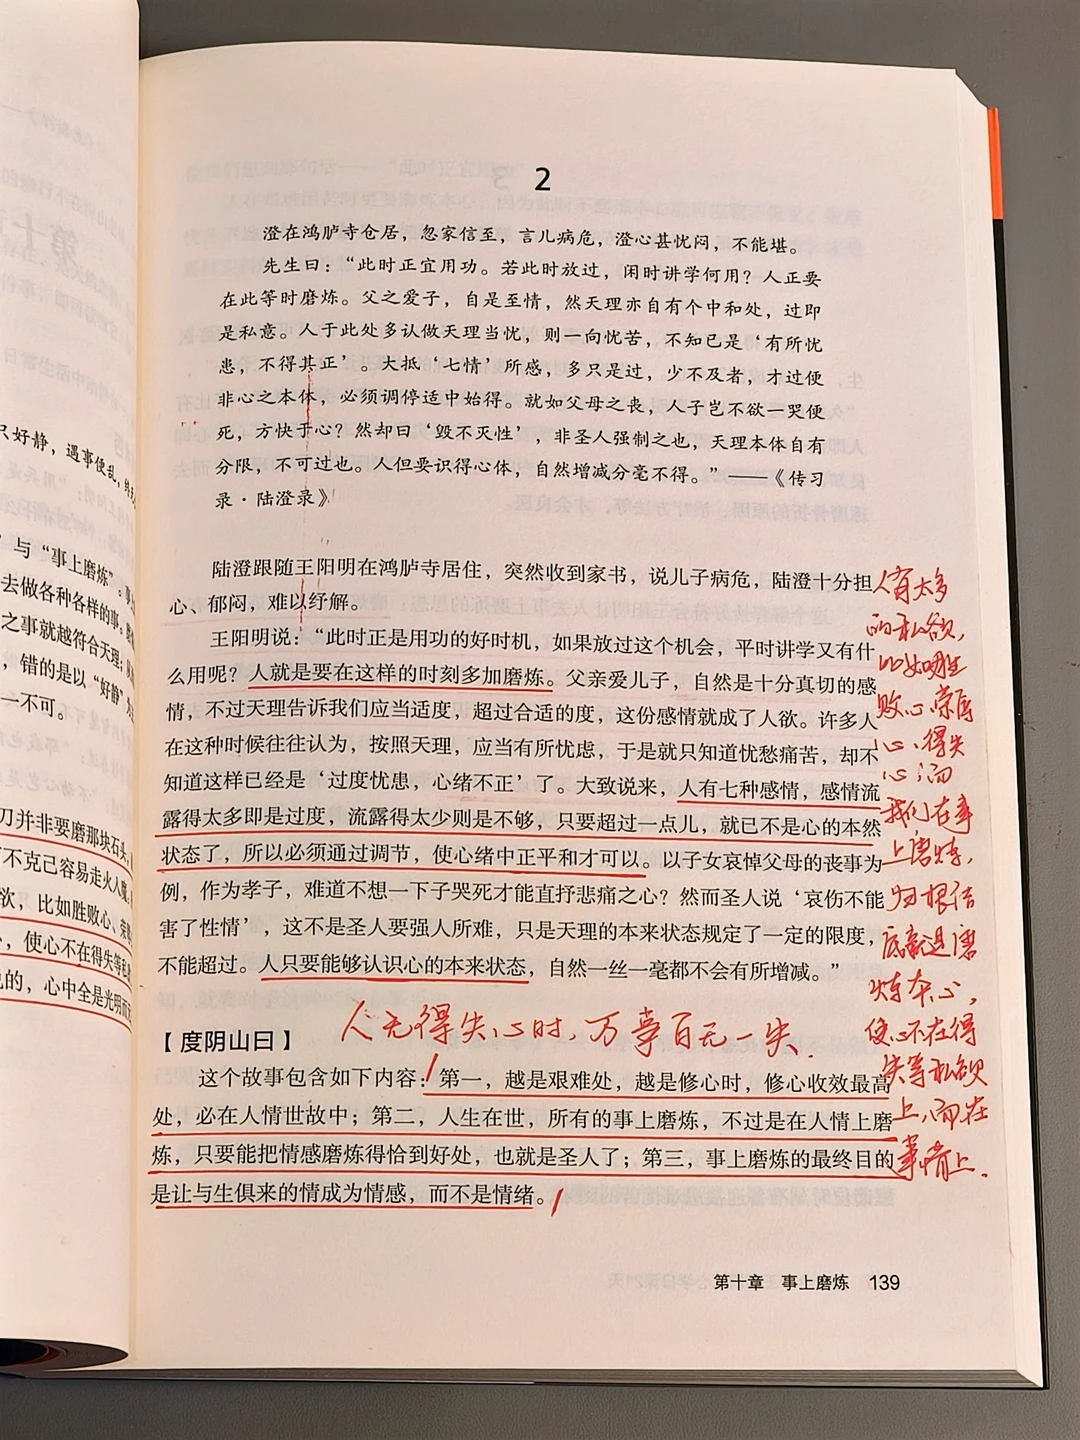 只好静，遇事便乱，终
”与“事上磨炼”。
去做各种各样的事。
之事就越符合天理；
，错的是以“好静”为
一不可。
刀并非要磨那块石头，
不克己容易走火入魔。
欲，比如胜败心、荣
，使心不在得失等私
的，心中全是光明而
2
澄在鸿胪寺仓居，忽家信至，言儿病危，澄心甚忧闷，不能堪。
先生曰：“此时正宜用功。若此时放过，闲时讲学何用？人正要
在此等时磨炼。父之爱子，自是至情，然天理亦自有个中和处，过即
是私意。人于此处多认做天理当忧，则一向忧苦，不知已是‘有所忧
患，不得其正’。大抵‘七情’所感，多只是过，少不及者，才过便
非心之本体，必须调停适中始得。就如父母之丧，人子岂不欲一哭便
死，方快于心？然却曰‘毁不灭性’，非圣人强制之也，天理本体自有
分限，不可过也。人但要识得心体，自然增减分毫不得。”——《传习
录·陆澄录》
陆澄跟随王阳明在鸿胪寺居住，突然收到家书，说儿子病危，陆澄十分担
心、郁闷，难以纾解。
王阳明说：“此时正是用功的好时机，如果放过这个机会，平时讲学又有什
么用呢？人就是要在这样的时刻多加磨炼。父亲爱儿子，自然是十分真切的感
情，不过天理告诉我们应当适度，超过合适的度，这份感情就成了人欲。许多人
在这种时候往往认为，按照天理，应当有所忧虑，于是就只知道忧愁痛苦，却不
知道这样已经是‘过度忧患，心绪不正’了。大致说来，人有七种感情，感情流
露得太多即是过度，流露得太少则是不够，只要超过一点儿，就已不是心的本然
状态了，所以必须通过调节，使心绪中正平和才可以。以子女哀悼父母的丧事为
例，作为孝子，难道不想一下子哭死才能直抒悲痛之心？然而圣人说‘哀伤不能
害了性情’，这不是圣人要强人所难，只是天理的本来状态规定了一定的限度，
不能超过。人只要能够认识心的本来状态，自然一丝一毫都不会有所增减。”
人无得失心时，万事百无一失．
【度阴山曰】
这个故事包含如下内容：第一，越是艰难处，越是修心时，修心收效最高
处，必在人情世故中；第二，人生在世，所有的事上磨炼，不过是在人情上磨
炼，只要能把情感磨炼得恰到好处，也就是圣人了；第三，事上磨炼的最终目的
是让与生俱来的情成为情感，而不是情绪。
人有太多
的私欲，
比如胜
败心、荣辱
心、得失
心；而
我们在事
上磨炼，
归根结
底就是磨
炼本心，
使心不在得
失等私欲
上，而在
事情上．
第十章 事上磨炼 139